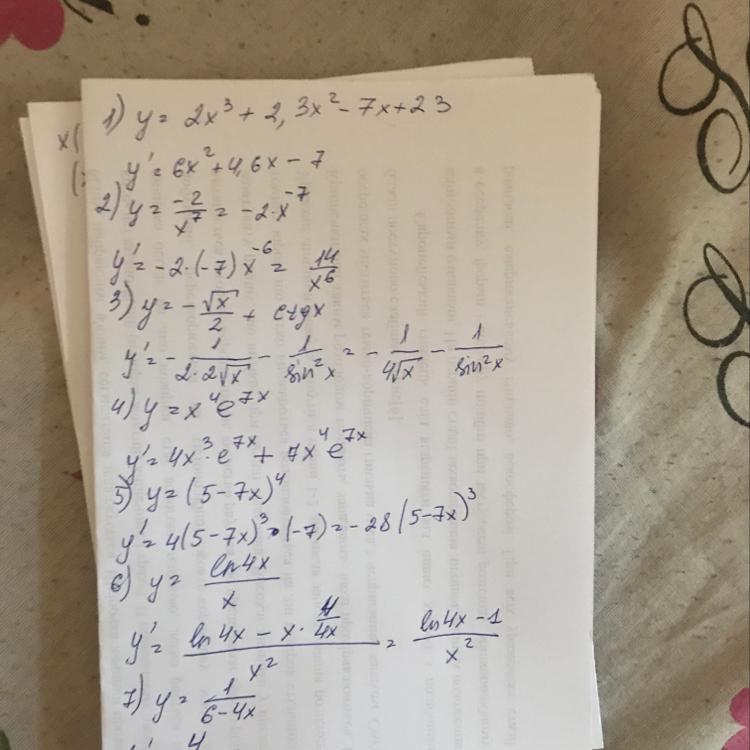 x(
(=
1) y = 2x³ + 2,3x² - 7x + 23
y' = 6x² + 4,6x - 7
2) y = -2/x⁷ = -2·x⁻⁷
y' = -2·(-7)x⁻⁶ = 14/x⁶
3) y = -√x/2 + ctgx
y' = -1/(2·2√x) - 1/sin²x = -1/(4√x) - 1/sin²x
4) y = x⁴e⁷ˣ
y' = 4x³·e⁷ˣ + 7x⁴e⁷ˣ
5) y = (5-7x)⁴
y' = 4(5-7x)³·(-7) = -28(5-7x)³
6) y = ln4x/x
y' = (ln4x - x·4/4x)/x² = (ln4x-1)/x²
7) y = 1/(6-4x)
y' 4